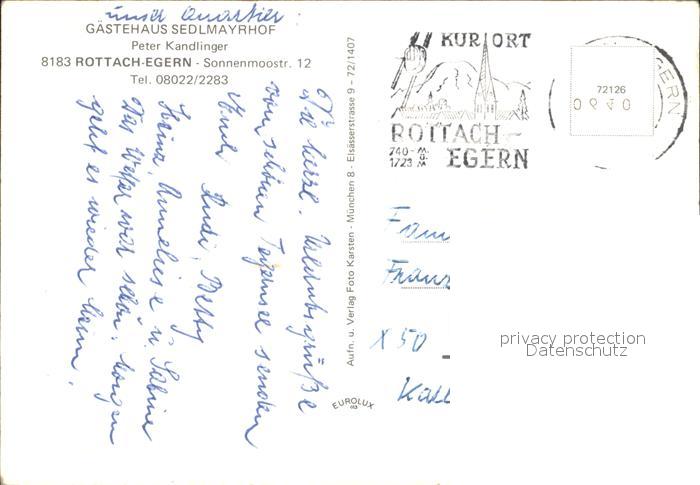 unser Quartier:
GÄSTEHAUS SEDLMAYRHOF
Peter Kandlinger
8183 ROTTACH-EGERN - Sonnenmoostr. 12
Tel. 08022/2283
herzl. Urlaubsgrüße
vom schönen Tegernsee senden
Euch Rudi, Betty,
Heina, Anneliese u. Sabine
Das Wetter war schön. Morgen
geht es wieder heim.
Aufn. u. Verlag Foto Karsten - München 8 - Elsässerstrasse 9 - 72/1407
EUROLUX
KURORT
ROTTACH-
EGERN
740- M
1723 M
EGERN
72126
Fam
Franz
X 50
privacy protection
Datenschutz